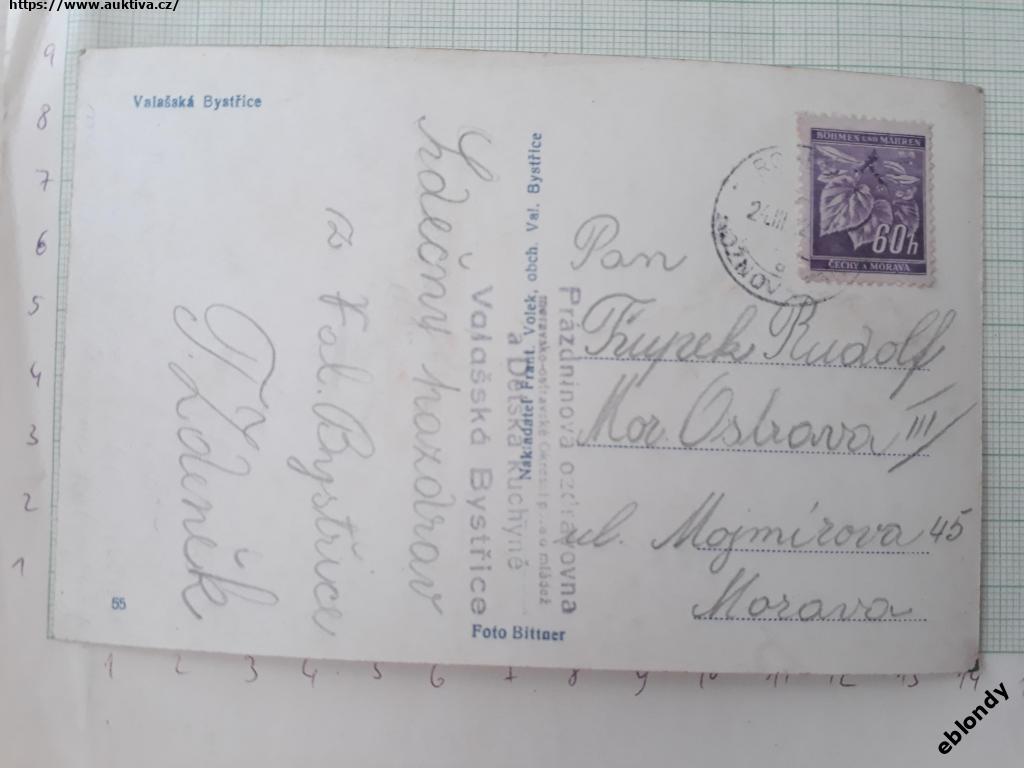 https://www.auktiva.cz/
Valašská Bystřice
55
Srdečný pozdrav
z Val. Bystřice
Zdeněk
Nakladatel Frant. Volek, obch. Val. Bystřice
Foto Bittner
Prázdninová ozdravovna
a Dětská kuchyně
Valašská Bystřice
BÖHMEN UND MÄHREN
60h
ČECHY A MORAVA
Pan
Rudolf
Mor. Ostrava III/
ul. Mojmírova 45
Morava
9
8
7
6
5
4
3
2
1
1 2 3 4 5 6 7 8 9 10 11 12 13 14
eblondy